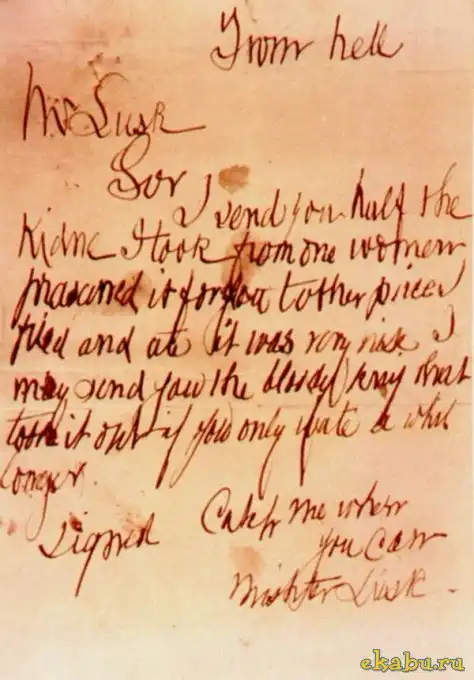 From hell
Mr Lusk
Sor
I send you half the
Kidne I took from one women
prasarved it for you tother piece I
fried and ate it was very nise I
may send you the bloody knif that
took it out if you only wate a whil
longer.
signed
Catch me when
you Can
Mishter Lusk.
ekabu.ru